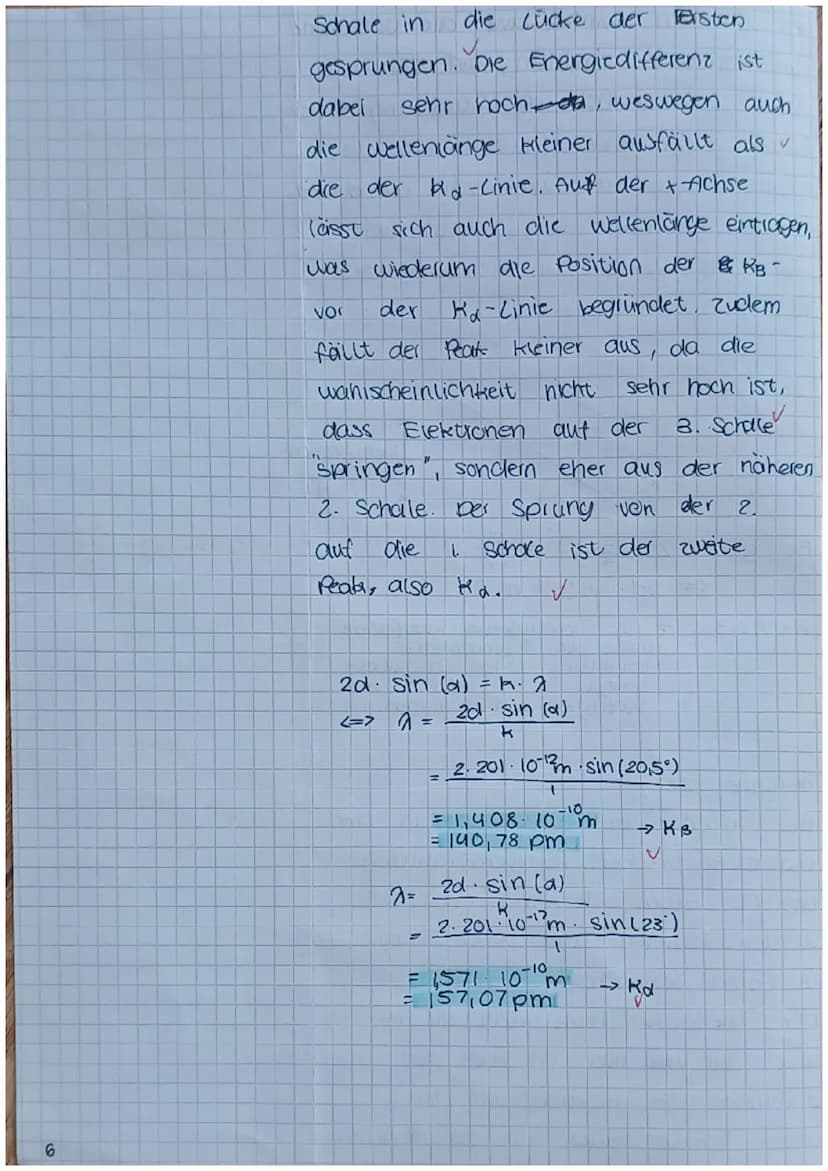 Schale in die Lücke der ersten
gesprungen. Die Energiedifferenz ist
dabei sehr hoch, weswegen auch
die Wellenlänge kleiner ausfällt als
die der Kα-Linie. Auf der x-Achse
lässt sich auch die Wellenlänge eintragen,
was wiederum die Position der Kβ-
vor der Kα-Linie begründet. Zudem
fällt der Peak kleiner aus, da die
Wahrscheinlichkeit nicht sehr hoch ist,
dass Elektronen auf der 3. Schale
"springen", sondern eher aus der näheren
2. Schale. Der Sprung von der 2.
auf die 1. Schale ist der zweite
Peak, also Kα.
2d · sin (α) = k · λ
<=> λ = 2d · sin (α) / k
= 2 · 201 · 10^-12 m · sin (20,5°) / 1
= 1,408 · 10^-10 m → Kβ
= 140,78 pm
λ = 2d · sin (α) / k
= 2 · 201 · 10^-12 m · sin (23°) / 1
= 1,571 · 10^-10 m → Kα
= 157,07 pm
6